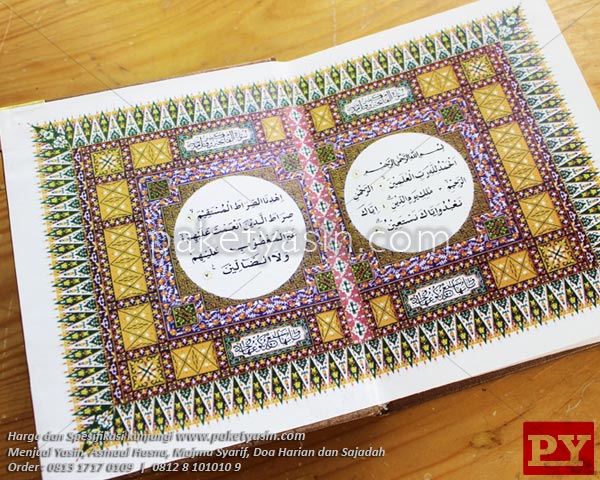 بِسْمِ اللهِ الرَّحْمٰنِ الرَّحِيْمِ
اَلْحَمْدُ لِلّٰهِ رَبِّ الْعٰلَمِيْنَ الرَّحْمٰنِ
الرَّحِيْمِ مٰلِكِ يَوْمِ الدِّيْنِ اِيَّاكَ
نَعْبُدُ وَاِيَّاكَ نَسْتَعِيْنُ
اِهْدِنَا الصِّرَاطَ الْمُسْتَقِيْمَ
صِرَاطَ الَّذِيْنَ اَنْعَمْتَ عَلَيْهِمْ
غَيْرِ الْمَغْضُوْبِ عَلَيْهِمْ
وَلَا الضَّالِّيْنَ
paketyasin.com
Harga dan Spesifikasi kunjungi www.paketyasin.com
Menjual Yasin, Asmaul Husna, Majmu Syarif, Doa Harian dan Sajadah
Order : 0813 1717 0109 | 0812 8 101010 9
PY